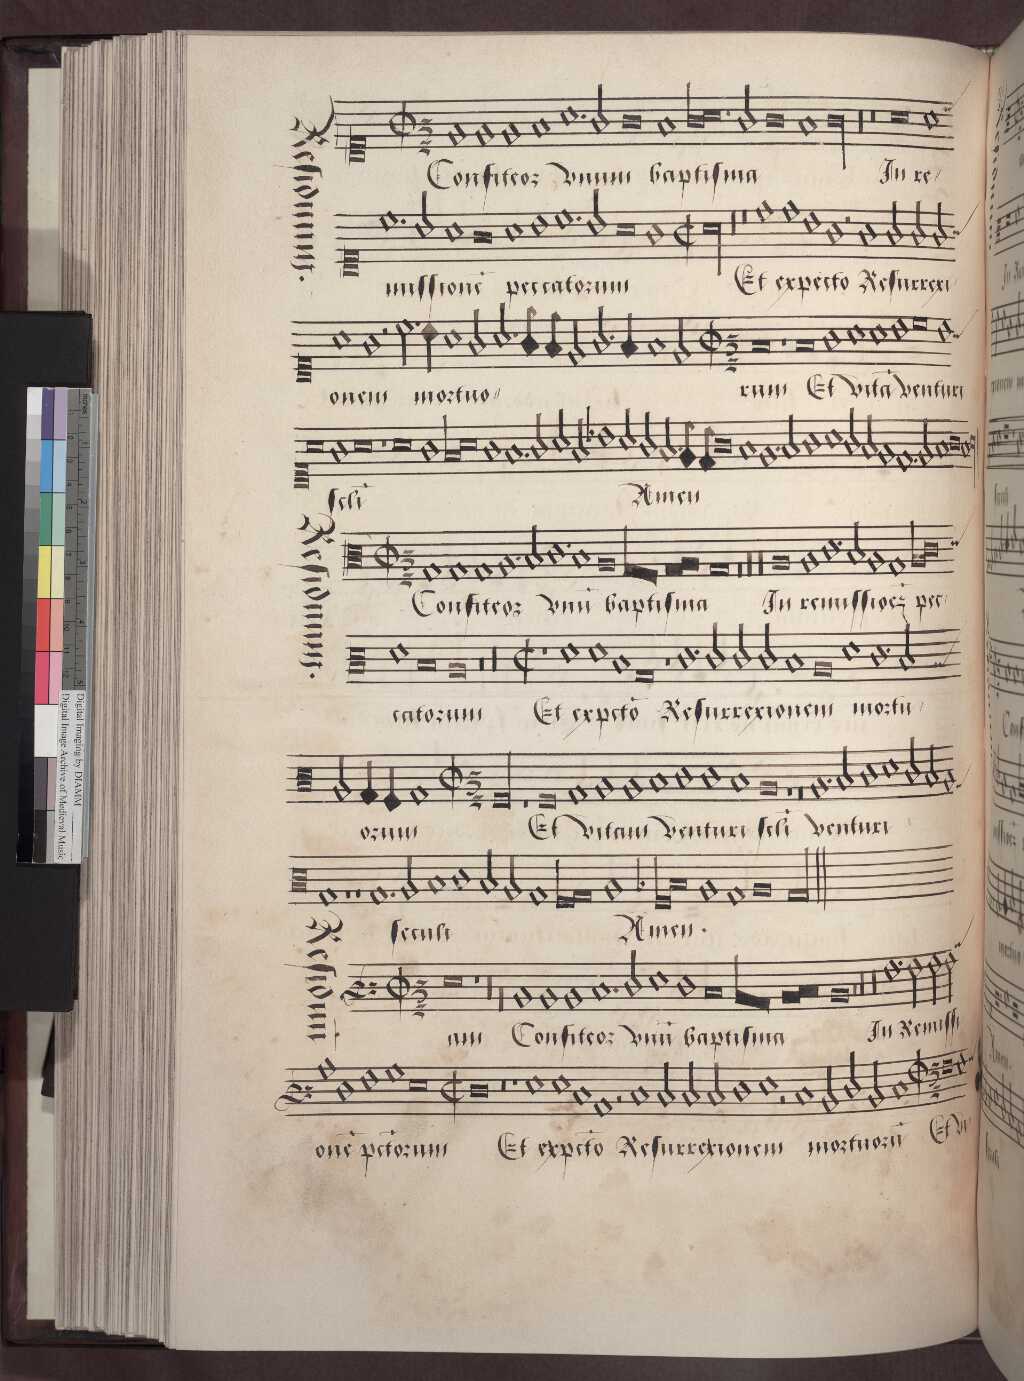 Residuum.
Confiteor vnum baptisma In re
missionē peccatorum Et expecto Resurrexi
onem mortuo
rum Et vitā venturi
scli Amen
Residuum.
Confiteor vnū baptisma In remissioēz pec
catorum Et expctō Resurrexionem mortu
orum Et vitam venturi scli venturi
seculi Amen.
Residuū
am Confiteor vnū baptisma In Remissi
onē pctōrum Et expctō Resurrexionem mortuorū Et vi
Digital Imaging by DIAMM
Digital Image Archive of Medieval Music